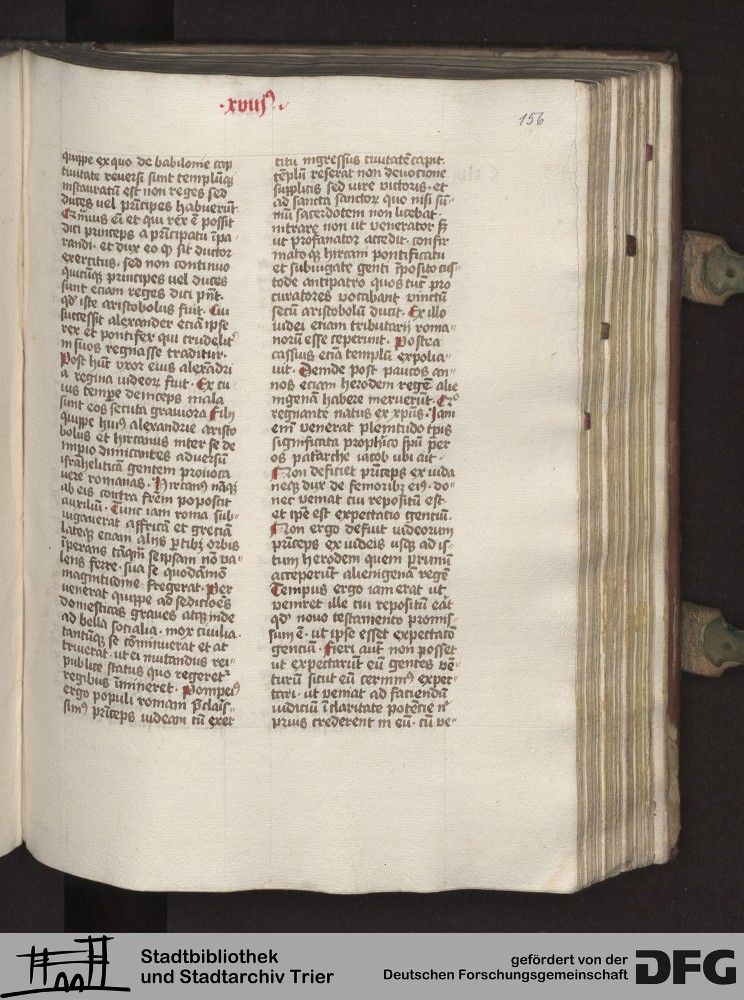 ·xviiiꝰ·
156
quippe ex quo de babilonie cap
tiuitate reuersi sunt templūqꝫ
instauratū est non reges sed
duces uel prīcipes habuerūt.
Qͣmuis eī et qui rex ē possit
dici princeps a prīcipatu īpa
randi· et dux eo qͩ sit ductor
exercitus· sed non continuo
quicūqꝫ principes uel duces
sunt etiam reges dici pn̄t·
qd̓ iste aristobolus fuit· Cui
successit alexander etiā ipse
rex et pontifex qui crudelit᷑
in suos regnasse traditur·
Post hūc vxor eius alexādri
a regina iudeoꝝ fuit· Ex cu
ius tempe deinceps mala
sunt eos secuta grauiora Filij
quippe huiꝰ alexandrie aristo
bolus et hircanus inter se de
imperio dimicantes aduersū
israheliticā gentem prouoca
uere romanas· Hircanꝰ nāqꝫ
ab eis contra frēm poposcit
auxiliū· Tunc iam roma sub-
iugauerat affricā et greciā
lateqꝫ etiam alijs ꝑtibꝫ orbis
īperans tāqm̄ seipsam nō va-
lens ferre· sua se quodāmō
magnitudine fregerat· Per
uenerat quippe ad sedicioēs
domesticas graues atqꝫ inde
ad bella socialia· mox ciuilia·
tantūqꝫ se cōminuerat et at
triuerat· ut ei mutandus rei-
publice status quo regeret᷑
regibus īmineret· Pompeiꝰ
ergo populi romani p̄claris-
simꝰ prīceps iudeam cū exer
citu ingressus ciuitatē capit·
tēplū reserat non deuocione
supplicis sed iure victoris· et
ad sancta sanctoꝝ quo nisi sū-
mū sacerdotem non licebat·
intrare non ut venerator sꝫ
ut profanator accedit· confir
matoqꝫ hircani pontificatu
et subiugate genti īposito cus-
tode antipatro quos tūc pro
curatores vocabant vinctū
secū aristobolū ducit· Ex illo
iudei etiam tributarij roma-
norū esse ceperunt· Postea
cassius etiā templū expolia-
uit· Deinde post paucos an-
nos etiam herodem regē alie
nigenā habere meruerūt· Qͦ
regnante natus ex xpūs· Iam
eni᷑ venerat plenitudo tp̄is
significata prophīco spū per
os patͥarche iacob ubi ait·
Non deficiet prīceps ex iuda
neqꝫ dux de femoribꝫ eiꝰ· do-
nec veniat cui repositū est·
et ip̄e est expectatio gentiū·
Non ergo defuit iudeorum
prīceps ex iudeis usqꝫ ad is-
tum herodem quem primū
acceperūt alienigenā regē
Tempus ergo iam erat ut
veniret ille cui repositū erāt
qd̓ nouo testamento promis-
sum ē· ut ipse esset expectatō
gentiū· Fieri aūt non posset
ut expectarūt eū gentes vē-
turū sicut eū cernimꝰ expec
tari· ut veniat ad faciendū
iudiciū ī claritate potētie nͥ
prius crederent in eū· cū ve-
Stadtbibliothek
und Stadtarchiv Trier
gefördert von der
Deutschen Forschungsgemeinschaft
DFG